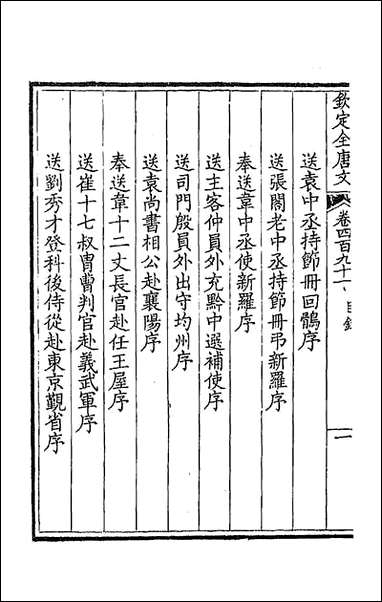 欽定全唐文
卷四百九十一
目錄
一
送袁中丞持節冊回鶻序
送張閣老中丞持節冊弔新羅序
奉送韋中丞使新羅序
送主客仲員外充黔中選補使序
送司門殷員外出守均州序
送袁尚書相公赴襄陽序
奉送韋十二丈長官赴任王屋序
送崔十七叔胄曹判官赴義武軍序
送劉秀才登科後侍從赴東京覲省序